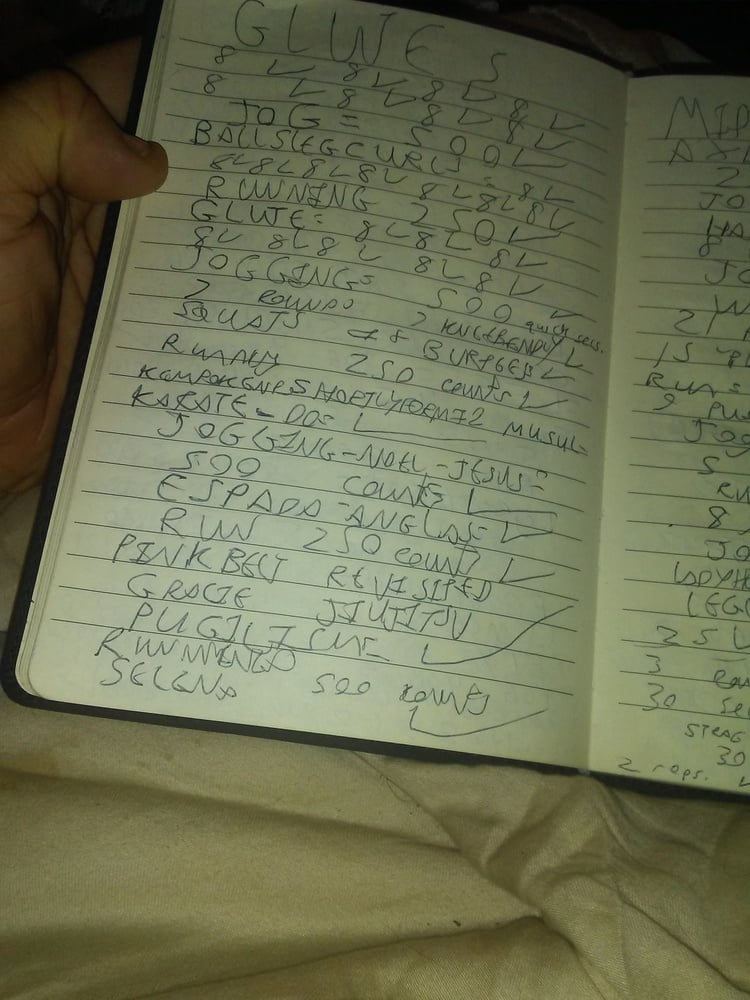 GLUTES
8 ✓ 8 ✓ 8 ✓ 8 ✓
8 ✓ 8 ✓ 8 ✓ 8 ✓
JOG = 500 ✓
BALLSLEGCURLS = 8 ✓
8 ✓ 8 ✓ 8 ✓ 8 ✓ 8 ✓ 8 ✓ 8 ✓
RUNNING 250 ✓
GLUTE: 8 ✓ 8 ✓ 8 ✓
8 ✓ 8 ✓ 8 ✓ 8 ✓ 8 ✓
JOGGING= 500 ✓
2 ROUNDS 7 KNEEBENDY ✓ quick secs.
SQUATS 8 BURPEES ✓
250 counts ✓
MUSUL-
KARATE-DO= ✓
JOGGING-NOEL-JESUS=
500 COUNTS ✓
ESPADA-ANGLAS= ✓
RUN 250 COUNTS ✓
PINKBELT REVISITED
GRACIE JIUJITSU
PUGILISME ✓
RUNNING
500 counts ✓
MID
2
JO
HA
8
JO
21
15
RUN =
9 PU
JOG
5
RU
8
JO
LADYH
LEG
25 ✓
3
30 Se
30
2 reps. ✓